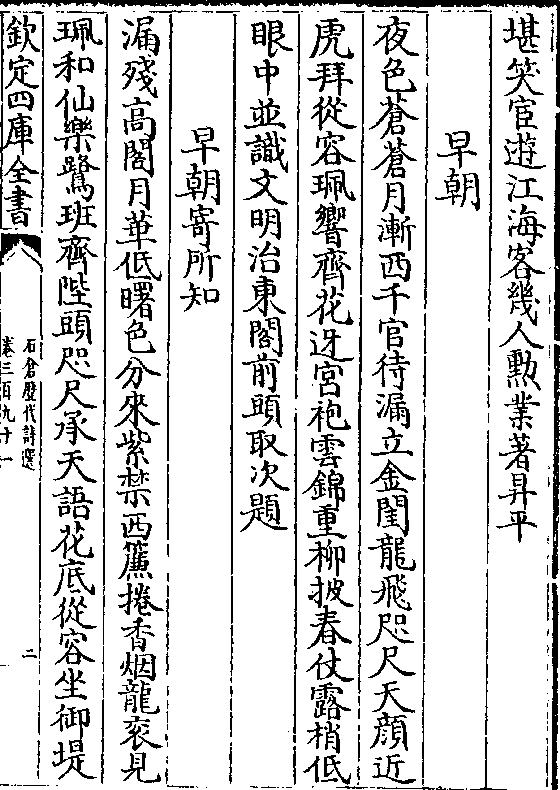 堪笑宦遊江海客幾人勲業著昇平
早朝
夜色蒼蒼月漸西千官待漏立金閨龍飛咫尺天顔近
虎拜從容珮響齊花迓宮袍雲錦重柳披春仗露梢低
眼中並識文明治東閣前頭取次題
早朝寄所知
漏殘高閣月華低曙色分來紫禁西簾捲香烟龍衮見
珮和仙樂鷺班齊陛頭咫尺承天語花底從容坐御堤
欽定四庫全書
石倉歷代詩選
卷三百九十一
二